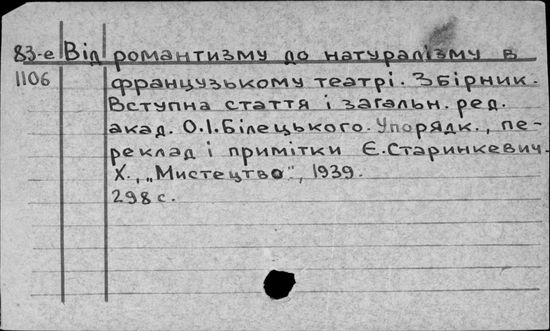 83-е Від романтизму до натуралізму в
1106 французькому театрі. Збірник.
Вступна стаття і загальн. ред.
акад. О.І.Білецького. Упорядк., пе-
реклад і примітки Є.Старинкевич.
Х., „Мистецтво", 1939.
298 с.